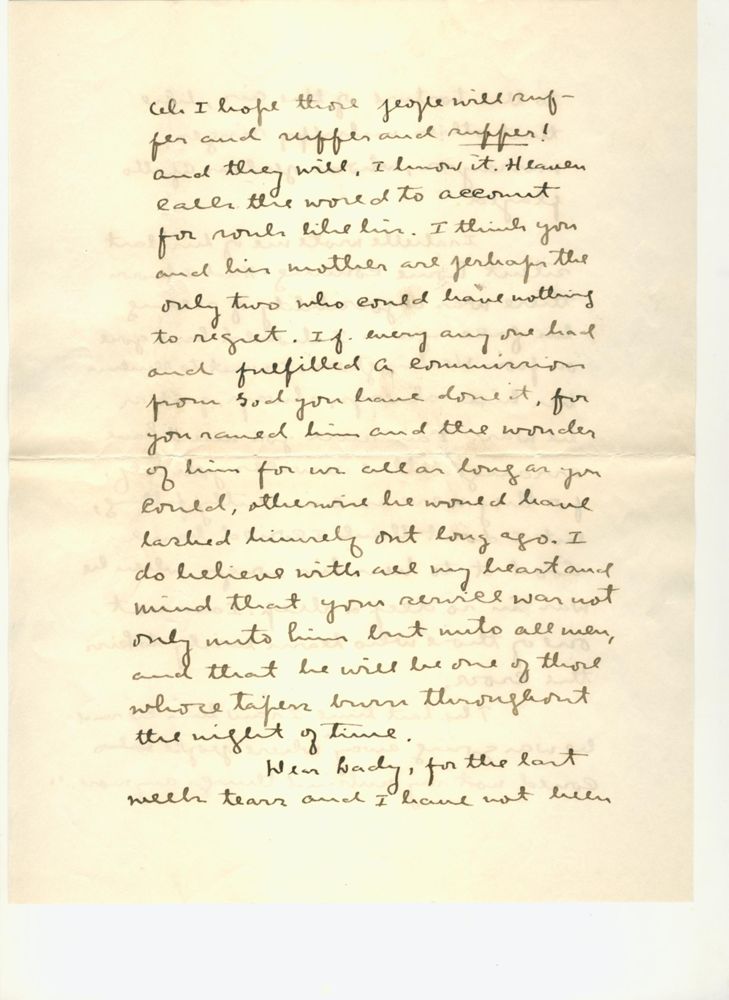 Oh I hope those people will suf-
fer and suffer and suffer!
and they will, I know it. Heaven
calls the world to account
for souls like his. I think you
and his mother are perhaps the
only two who could have nothing
to regret. If every any one had
and fulfilled a commission
from God you have done it, for
you saved him and the wonder
of him for us all as long as you
could, otherwise he would have
lashed himself out long ago. I
do believe with all my heart and
mind that your service was not
only unto him but unto all men,
and that he will be one of those
whose tapers burn throughout
the night of time.
Dear Lady, for the last
week tears and I have not been